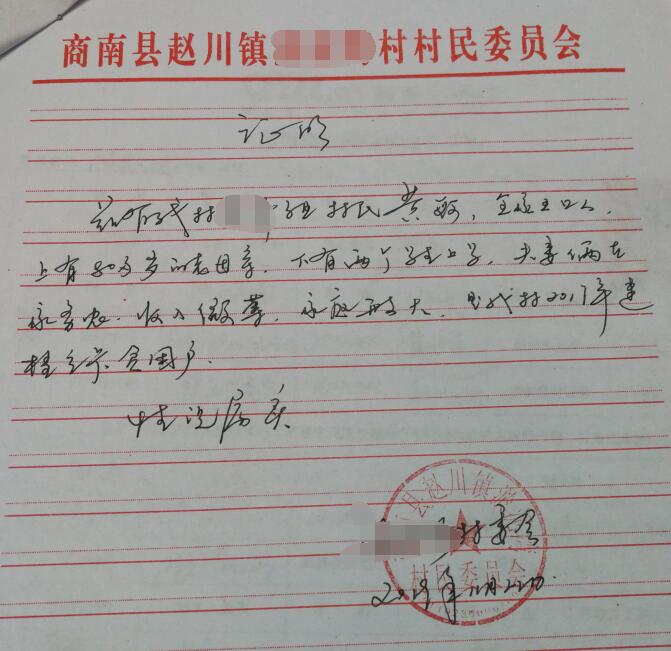 商南县赵川镇 村村民委员会
证明
兹有我村 组村民黄 ，全家五口人，
上有80多岁的老母亲，下有两个学生上学，夫妻俩在
家务农，收入微薄，家庭 大，是我村2017年建
档立卡贫困户。
情况属实
村委会
2019年 月22日
县赵川镇
村民委员会